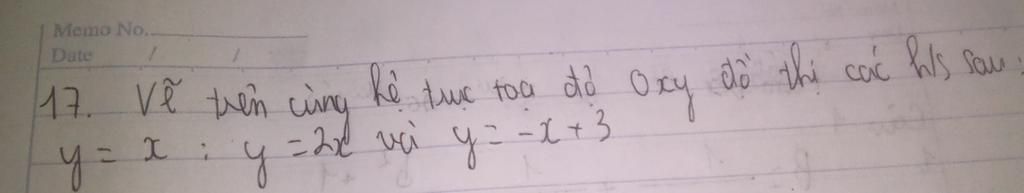 Memo No.
Date / /
17. Vẽ trên cùng hệ trục toạ độ Oxy đồ thị các h/s sau:
y = x ; y = 2x và y = -x + 3